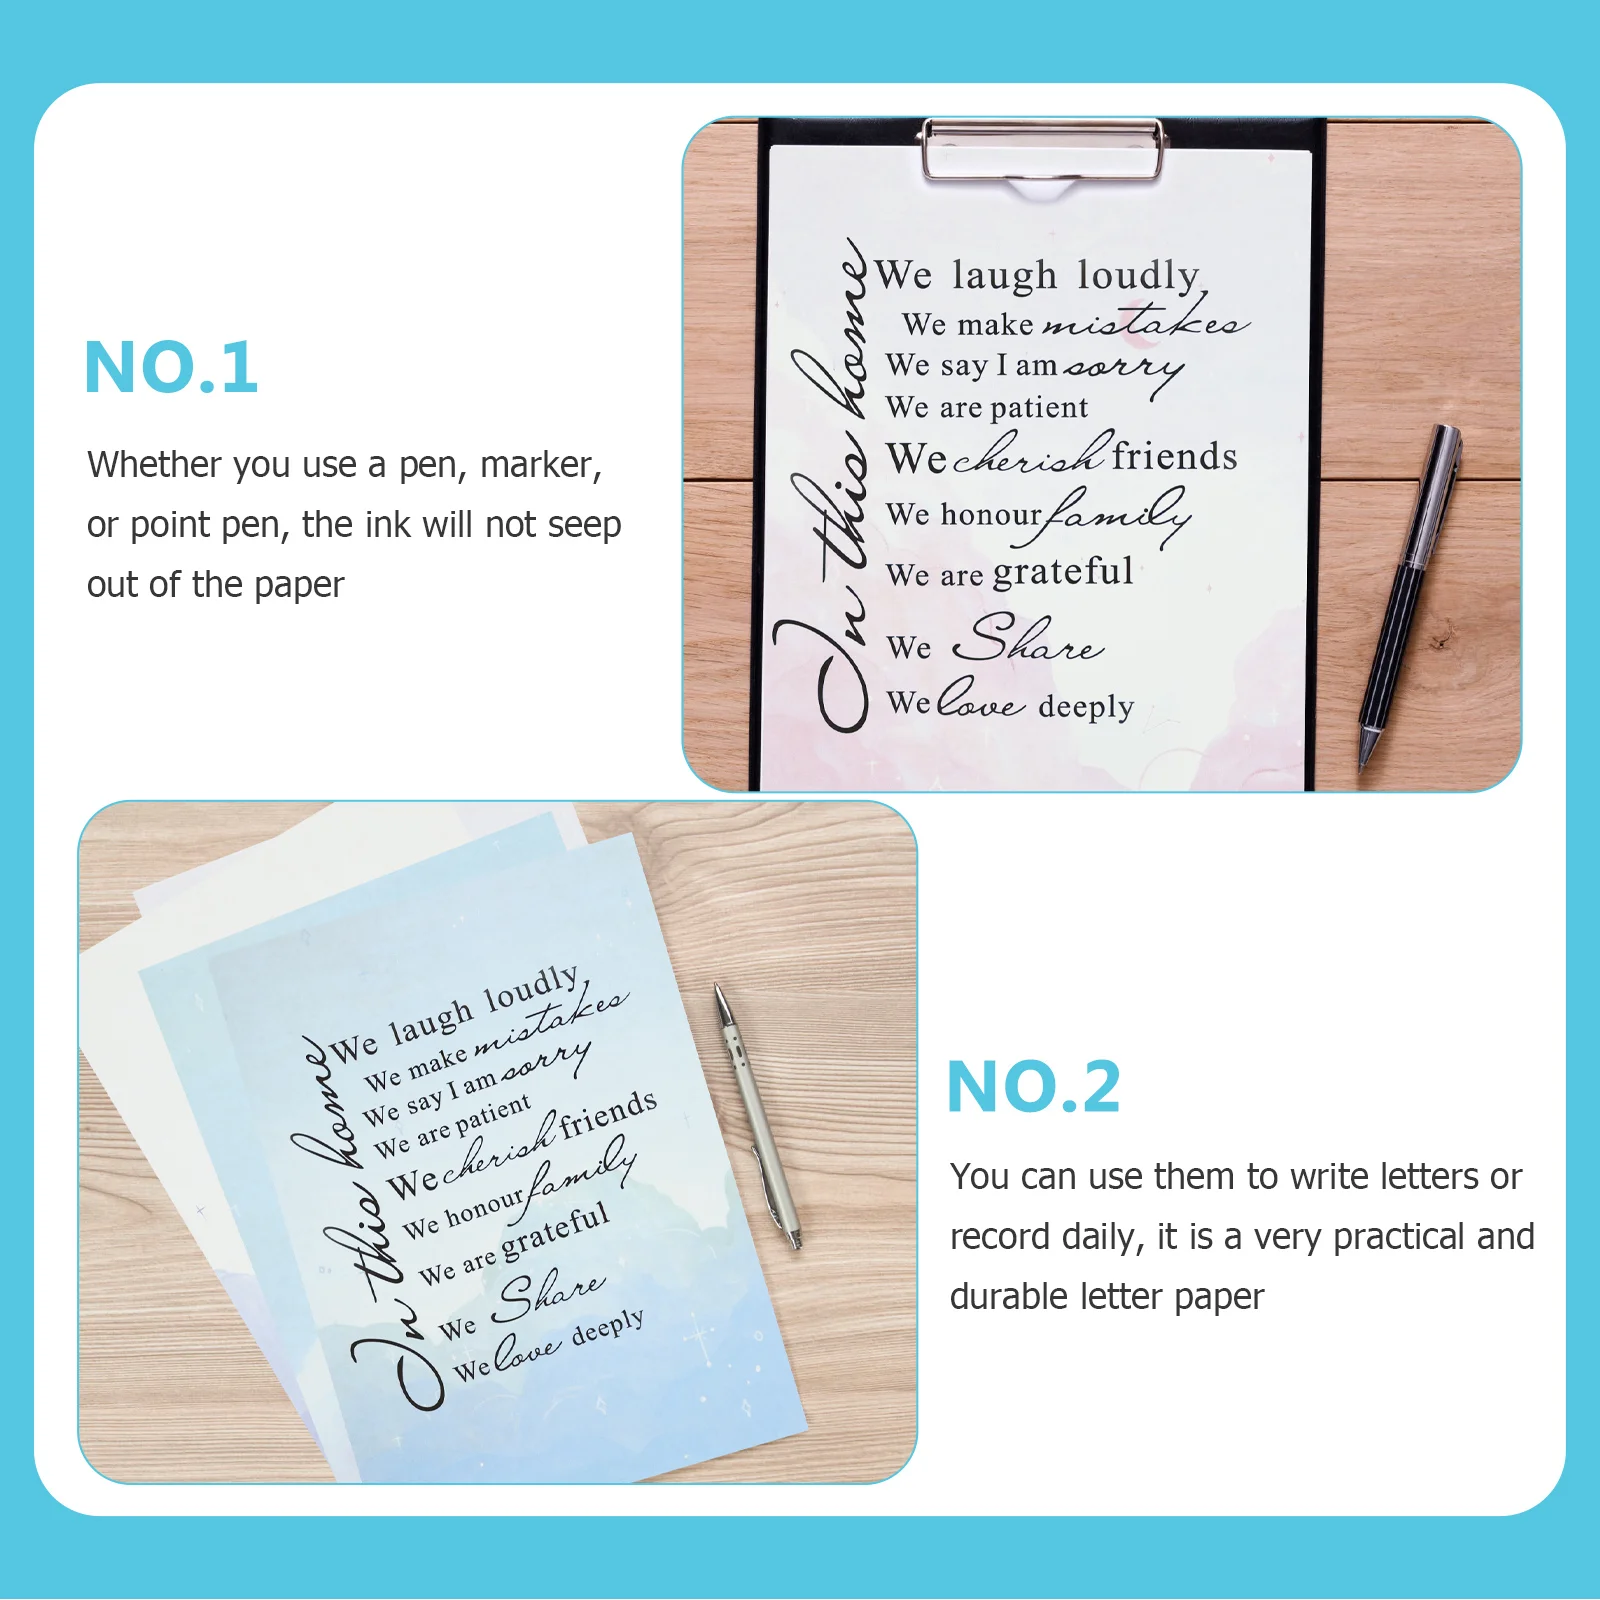 NO.1
Whether you use a pen, marker,
or point pen, the ink will not seep
out of the paper
In this home
We laugh loudly
We make mistakes
We say I am sorry
We are patient
We cherish friends
We honour family
We are grateful
We Share
We love deeply
In this home
We laugh loudly
We make mistakes
We say I am sorry
We are patient
We cherish friends
We honour family
We are grateful
We Share
We love deeply
NO.2
You can use them to write letters or
record daily, it is a very practical and
durable letter paper